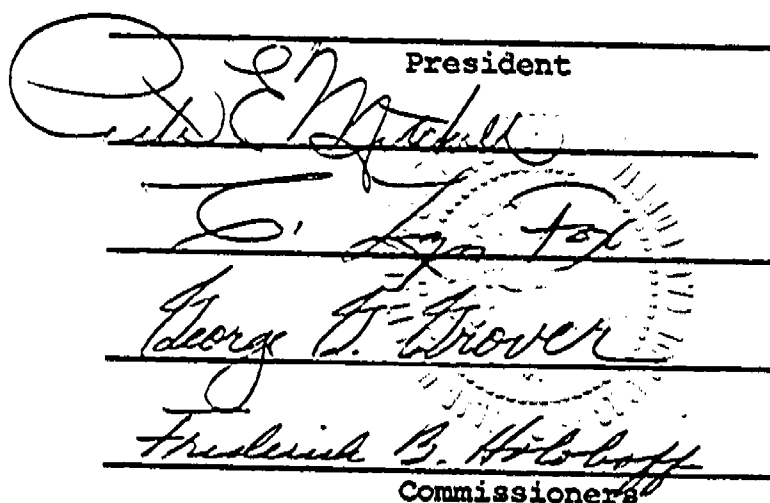 President
Peter E Mitchell
T. Lyn Fox
George G. Grover
Frederick B. Holoboff
Commissioners